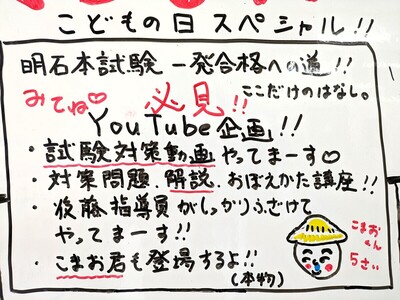 こどもの日 スペシャル!!
明石本試験 一発合格への道!!
みてね♡ 必見!! ここだけのはなし。
YouTube企画!!
・試験対策動画 やってまーす♡
・対策問題、解説、おぼえかた講座!!
・後藤指導員がしっかりふざけて
やってまーす!!
・こまお君も登場するよ!!
(本物)
こまおくん
5さい